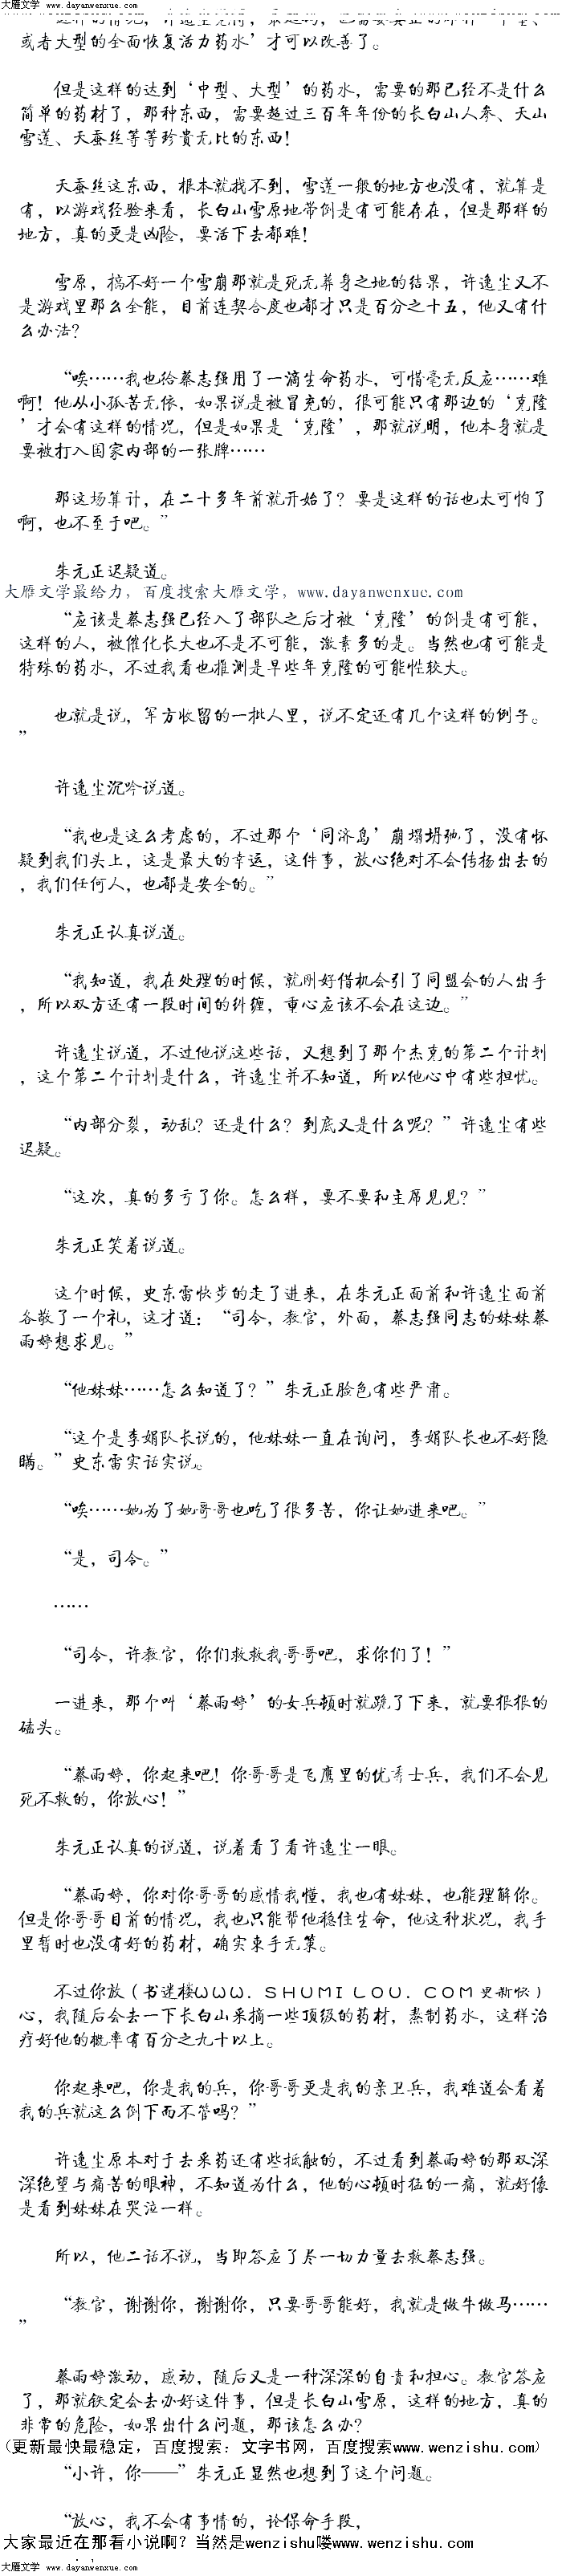 大雁文学 www.dayanwenxue.com
或者大型的全面恢复活力药水’才可以改善了。
但是这样的达到‘中型、大型’的药水，需要的那已经不是什么
简单的药材了，那种东西，需要超过三百年年份的长白山人参、天山
雪莲、天蚕丝等等珍贵无比的东西！
天蚕丝这东西，根本就找不到，雪莲一般的地方也没有，就算是
有，以游戏经验来看，长白山雪原地带倒是有可能存在，但是那样的
地方，真的更是凶险，要活下去都难！
雪原，搞不好一个雪崩那就是死无葬身之地的结果，许逸尘又不
是游戏里那么全能，目前连契合度也都才只是百分之十五，他又有什
么办法？
“唉……我也给蔡志强用了一滴生命药水，可惜毫无反应……难
啊！他从小孤苦无依，如果说是被冒充的，很可能只有那边的‘克隆
’才会有这样的情况，但是如果是‘克隆’，那就说明，他本身就是
要被打入国家内部的一张牌……
那这场算计，在二十多年前就开始了？要是这样的话也太可怕了
啊，也不至于吧。”
朱元正迟疑道。
大雁文学最给力，百度搜索大雁文学，www.dayanwenxue.com
“应该是蔡志强已经入了部队之后才被‘克隆’的倒是有可能，
这样的人，被催化长大也不是不可能，激素多的是。当然也有可能是
特殊的药水，不过我看也推测是早些年克隆的可能性较大。
也就是说，军方收留的一批人里，说不定还有几个这样的例子。
”
许逸尘沉吟说道。
“我也是这么考虑的，不过那个‘同济岛’崩塌坍弛了，没有怀
疑到我们头上，这是最大的幸运，这件事，放心绝对不会传扬出去的
，我们任何人，也都是安全的。”
朱元正认真说道。
“我知道，我在处理的时候，就刚好借机会引了同盟会的人出手
，所以双方还有一段时间的纠缠，重心应该不会在这边。”
许逸尘说道，不过他说这些话，又想到了那个杰克的第二个计划
，这个第二个计划是什么，许逸尘并不知道，所以他心中有些担忧。
“内部分裂，动乱？还是什么？到底又是什么呢？”许逸尘有些
迟疑。
“这次，真的多亏了你。怎么样，要不要和主席见见？”
朱元正笑着说道。
这个时候，史东雷快步的走了进来，在朱元正面前和许逸尘面前
各敬了一个礼，这才道：“司令，教官，外面，蔡志强同志的妹妹蔡
雨婷想求见。”
“他妹妹……怎么知道了？”朱元正脸色有些严肃。
“这个是李娟队长说的，他妹妹一直在询问，李娟队长也不好隐
瞒。”史东雷实话实说。
“唉……她为了她哥哥也吃了很多苦，你让她进来吧。”
“是，司令。”
……
“司令，许教官，你们救救我哥哥吧，求你们了！”
一进来，那个叫‘蔡雨婷’的女兵顿时就跪了下来，就要狠狠的
磕头。
“蔡雨婷，你起来吧！你哥哥是飞鹰里的优秀士兵，我们不会见
死不救的，你放心！”
朱元正认真的说道，说着看了看许逸尘一眼。
“蔡雨婷，你对你哥哥的感情我懂，我也有妹妹，也能理解你。
但是你哥哥目前的情况，我也只能帮他稳住生命，他这种状况，我手
里暂时也没有好的药材，确实束手无策。
不过你放（书迷楼ＷＷＷ．ＳＨＵＭＩＬＯＵ．ＣＯＭ更新快）
心，我随后会去一下长白山采摘一些顶级的药材，熬制药水，这样治
疗好他的概率有百分之九十以上。
你起来吧，你是我的兵，你哥哥更是我的亲卫兵，我难道会看着
我的兵就这么倒下而不管吗？”
许逸尘原本对于去采药还有些抵触的，不过看到蔡雨婷的那双深
深绝望与痛苦的眼神，不知道为什么，他的心顿时猛的一痛，就好像
是看到妹妹在哭泣一样。
所以，他二话不说，当即答应了尽一切力量去救蔡志强。
“教官，谢谢你，谢谢你，只要哥哥能好，我就是做牛做马……
”
蔡雨婷激动，感动，随后又是一种深深的自责和担心。教官答应
了，那就铁定会去办好这件事，但是长白山雪原，这样的地方，真的
非常的危险，如果出什么问题，那该怎么办？
(更新最快最稳定，百度搜索：文字书网，百度搜索www.wenzishu.com)
“小许，你——”朱元正显然也想到了这个问题。
“放心，我不会有事情的，论保命手段，
大家最近在那看小说啊？当然是wenzishu喽www.wenzishu.com
大雁文学 www.dayanwenxue.com